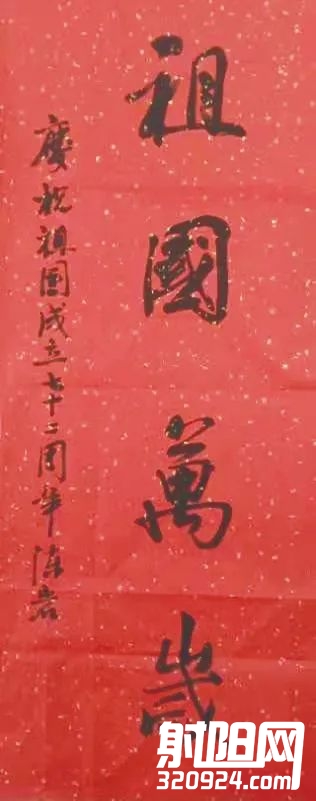 祖國萬歲
慶祝祖國成立七十二周年 陈岩
射阳网
320924.com